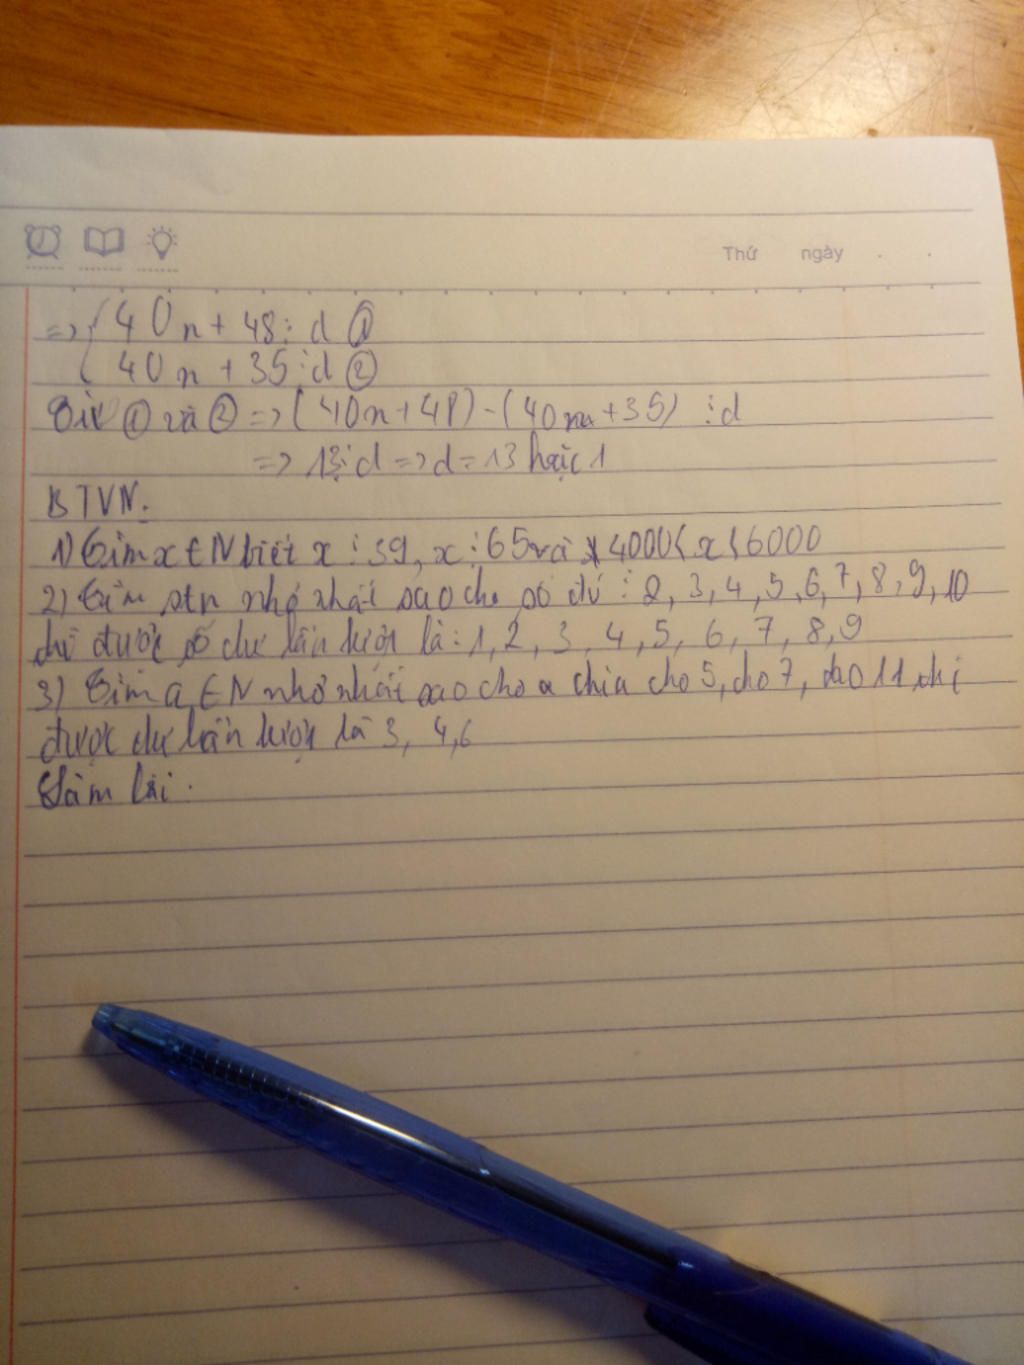 Thứ ngày
=> { 40n + 48 ⋮ d ①
40n + 35 ⋮ d ②
Từ ① và ② => (40n + 48) - (40n + 35) ⋮ d
=> 13 ⋮ d => d = 13 hoặc 1
BTVN.
1) Tìm x ∈ N biết x ⋮ 39, x ⋮ 65 và 4000 < x < 6000
2) Tìm stn nhỏ nhất sao cho số đó : 2, 3, 4, 5, 6, 7, 8, 9, 10
thì được số dư lần lượt là : 1, 2, 3, 4, 5, 6, 7, 8, 9
3) Tìm a ∈ N nhỏ nhất sao cho a chia cho 5, cho 7, cho 11 thì
được dư lần lượt là 3, 4, 6